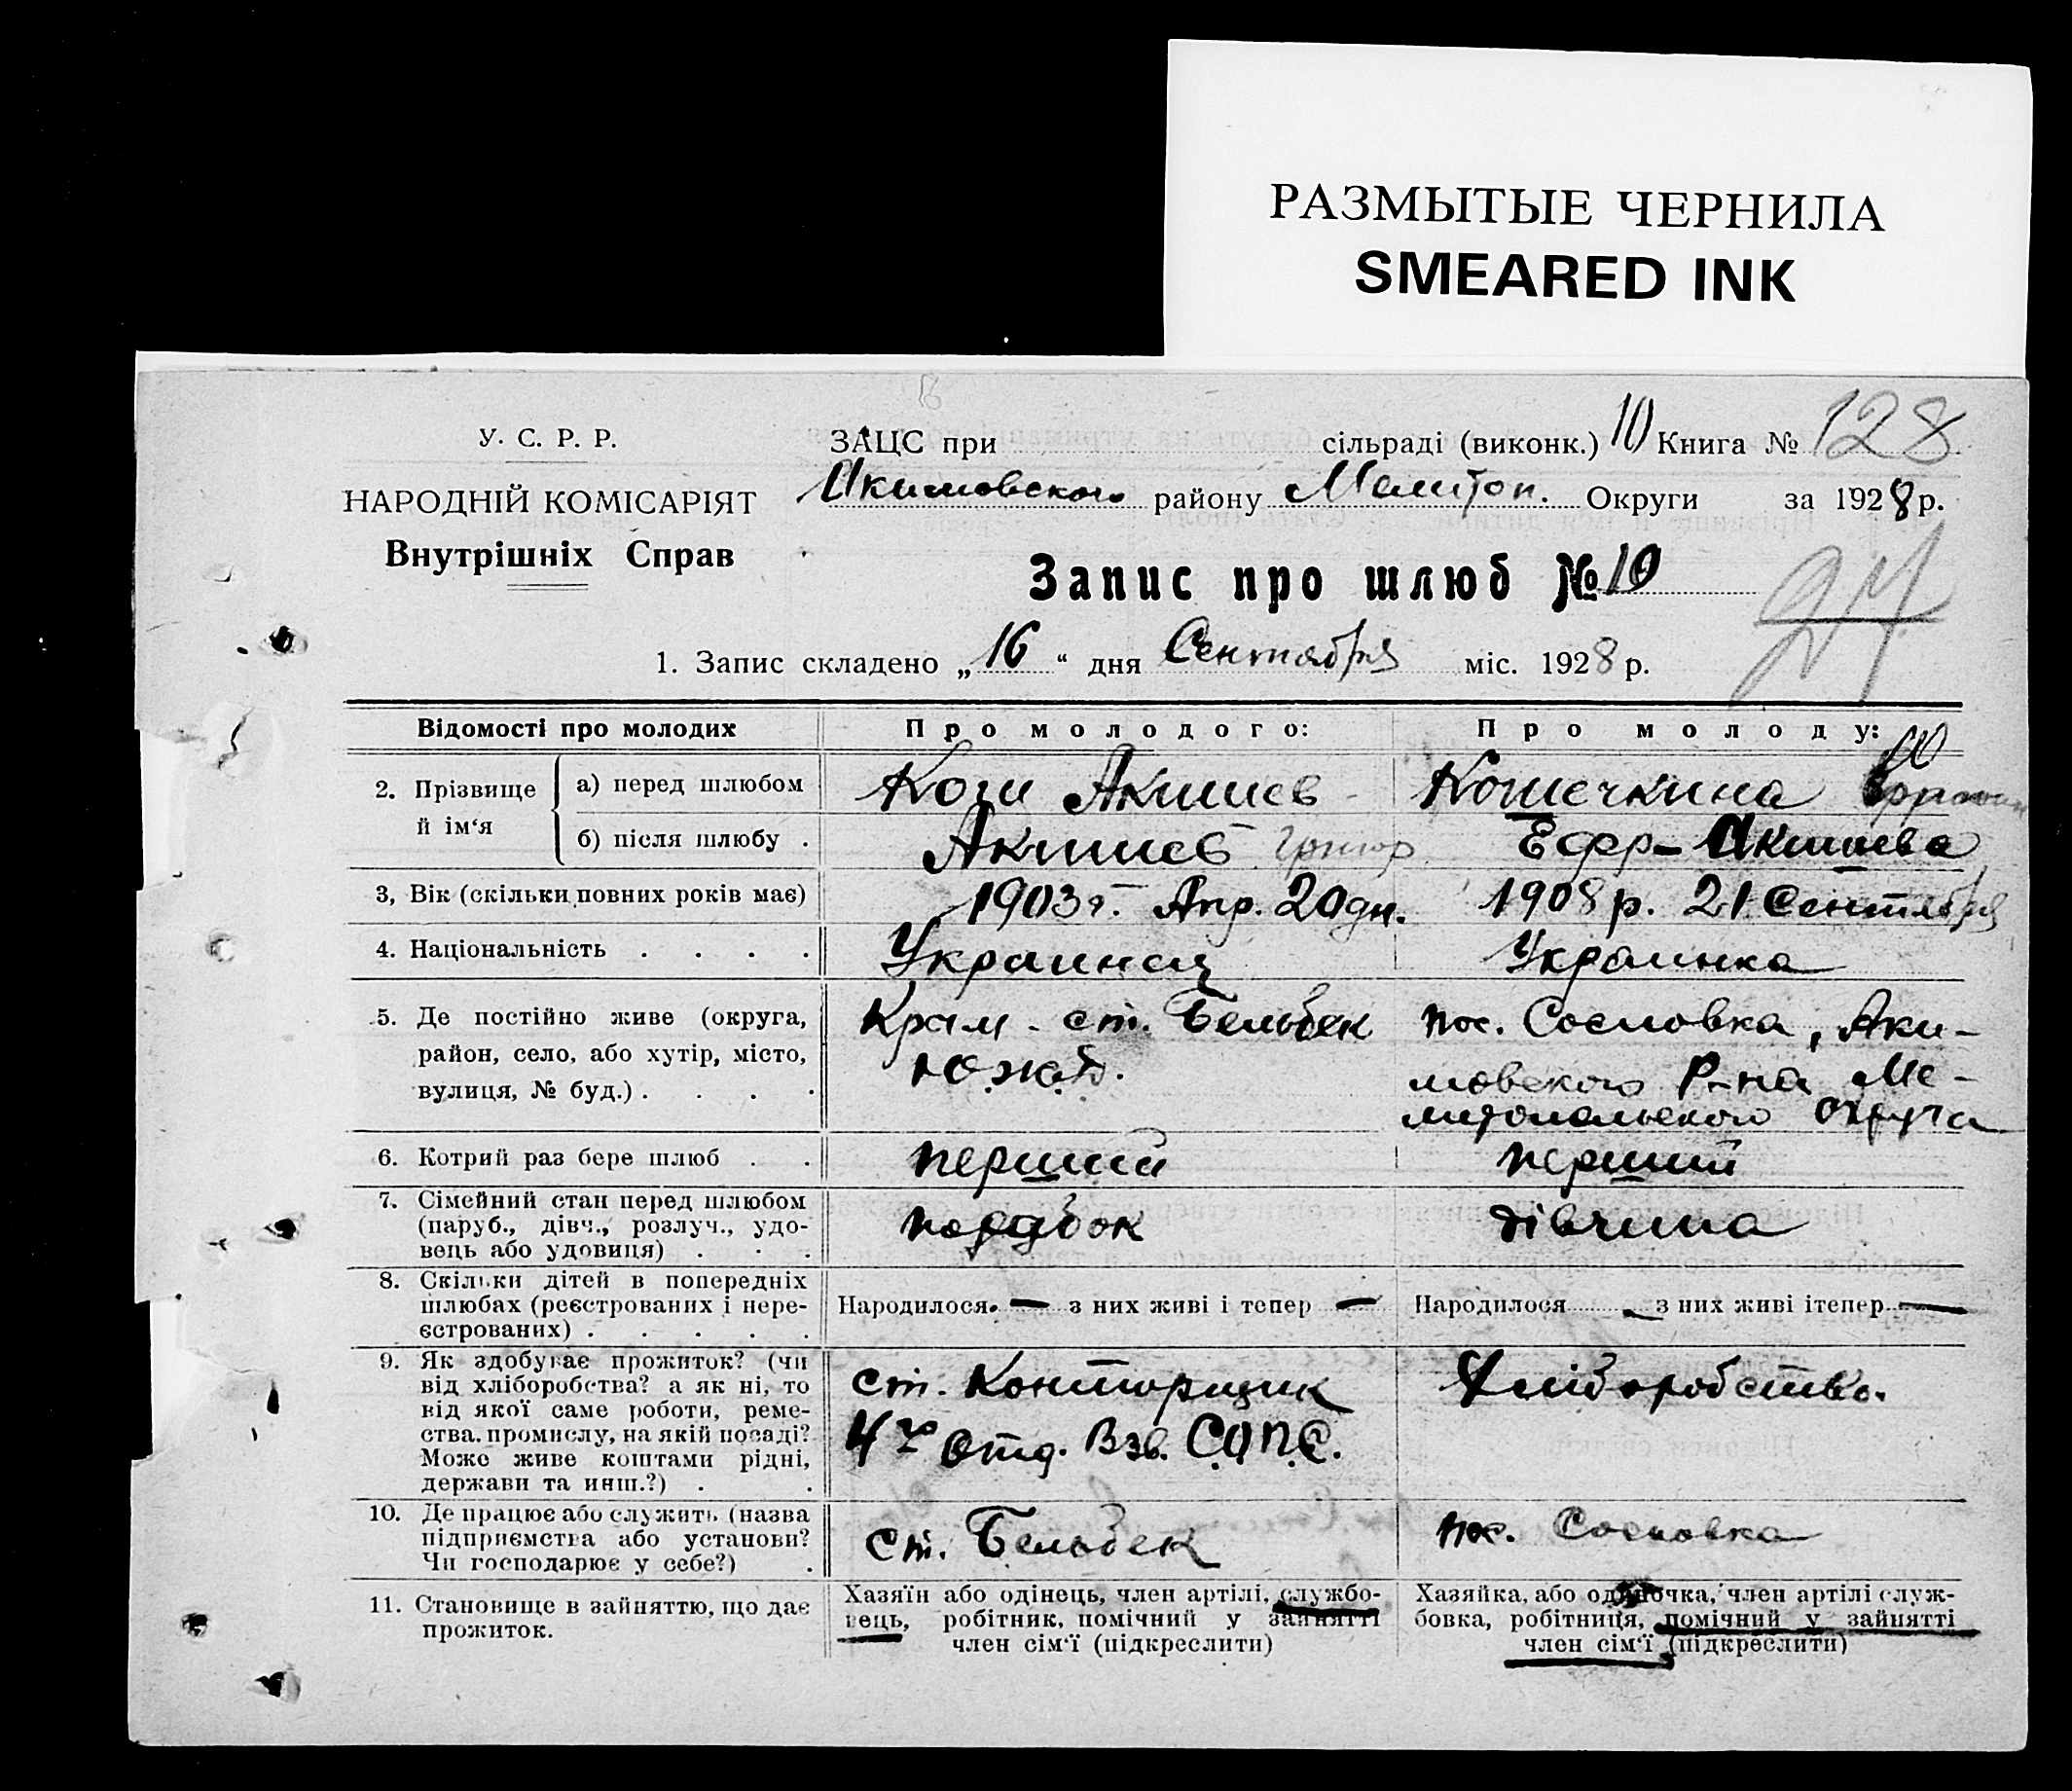 РАЗМЫТЫЕ ЧЕРНИЛА
SMEARED INK
У. С. Р. Р.
НАРОДНІЙ КОМІСАРІЯТ
Внутрішніх Справ
ЗАЦС при сільраді (виконк.) 10 Книга № 128
Акимовского району Мелитоп. Округи за 1928 р.
Запис про шлюб № 10
1. Запис складено „16“ дня Сентября міс. 1928 р.
Відомості про молодих
Про молодого:
Про молоду:
2. Прізвище й ім‘я
а) перед шлюбом
Акишев
Кошечкина
б) після шлюбу .
Акишев
Ефр- Акишева
3, Вік (скільки повних років має)
1903 г. Апр. 20 дн.
1908 р. 21 Сентября
4. Національність . . . .
Украинец
Украинка
5. Де постійно живе (округа,
район, село, або хутір, місто,
вулиця, № буд.) . . . .
Крым - ст. Бельбек
Юж.
пос. Сосновка, Аки-
мовского Р-на Ме-
литопольского округа
6. Котрий раз бере шлюб . .
перший
перший
7. Сімейний стан перед шлюбом
(паруб., дівч., розлуч., удо-
вець або удовиця) . . .
парубок
дівчина
8. Скільки дітей в попередніх
шлюбах (реєстрованих і нере-
єстрованих) . . . . .
Народилося — з них живі і тепер —
Народилося - з них живі ітепер —
9. Як здобуває прожиток? (чи
від хліборобства? а як ні, то
від якої саме роботи, реме-
ства, промислу, на якій посаді?
Може живе коштами рідні,
держави та инш.?) . .
ст. Конторщик
4го отд. Взв. С.О.П.С.
Хліборобство.
10. Де працює або служить (назва
підприємства або установи?
Чи господарює у себе?) .
ст. Бельбек
пос. Сосновка
11. Становище в зайняттю, що дає
прожиток.
Хазяїн або одінець, член артілі, службо-
вець, робітник, помічний у зайнятті
член сім‘ї (підкреслити)
Хазяйка, або одиночка, член артілі служ-
бовка, робітниця, помічний у зайнятті
член сім‘ї (підкреслити)